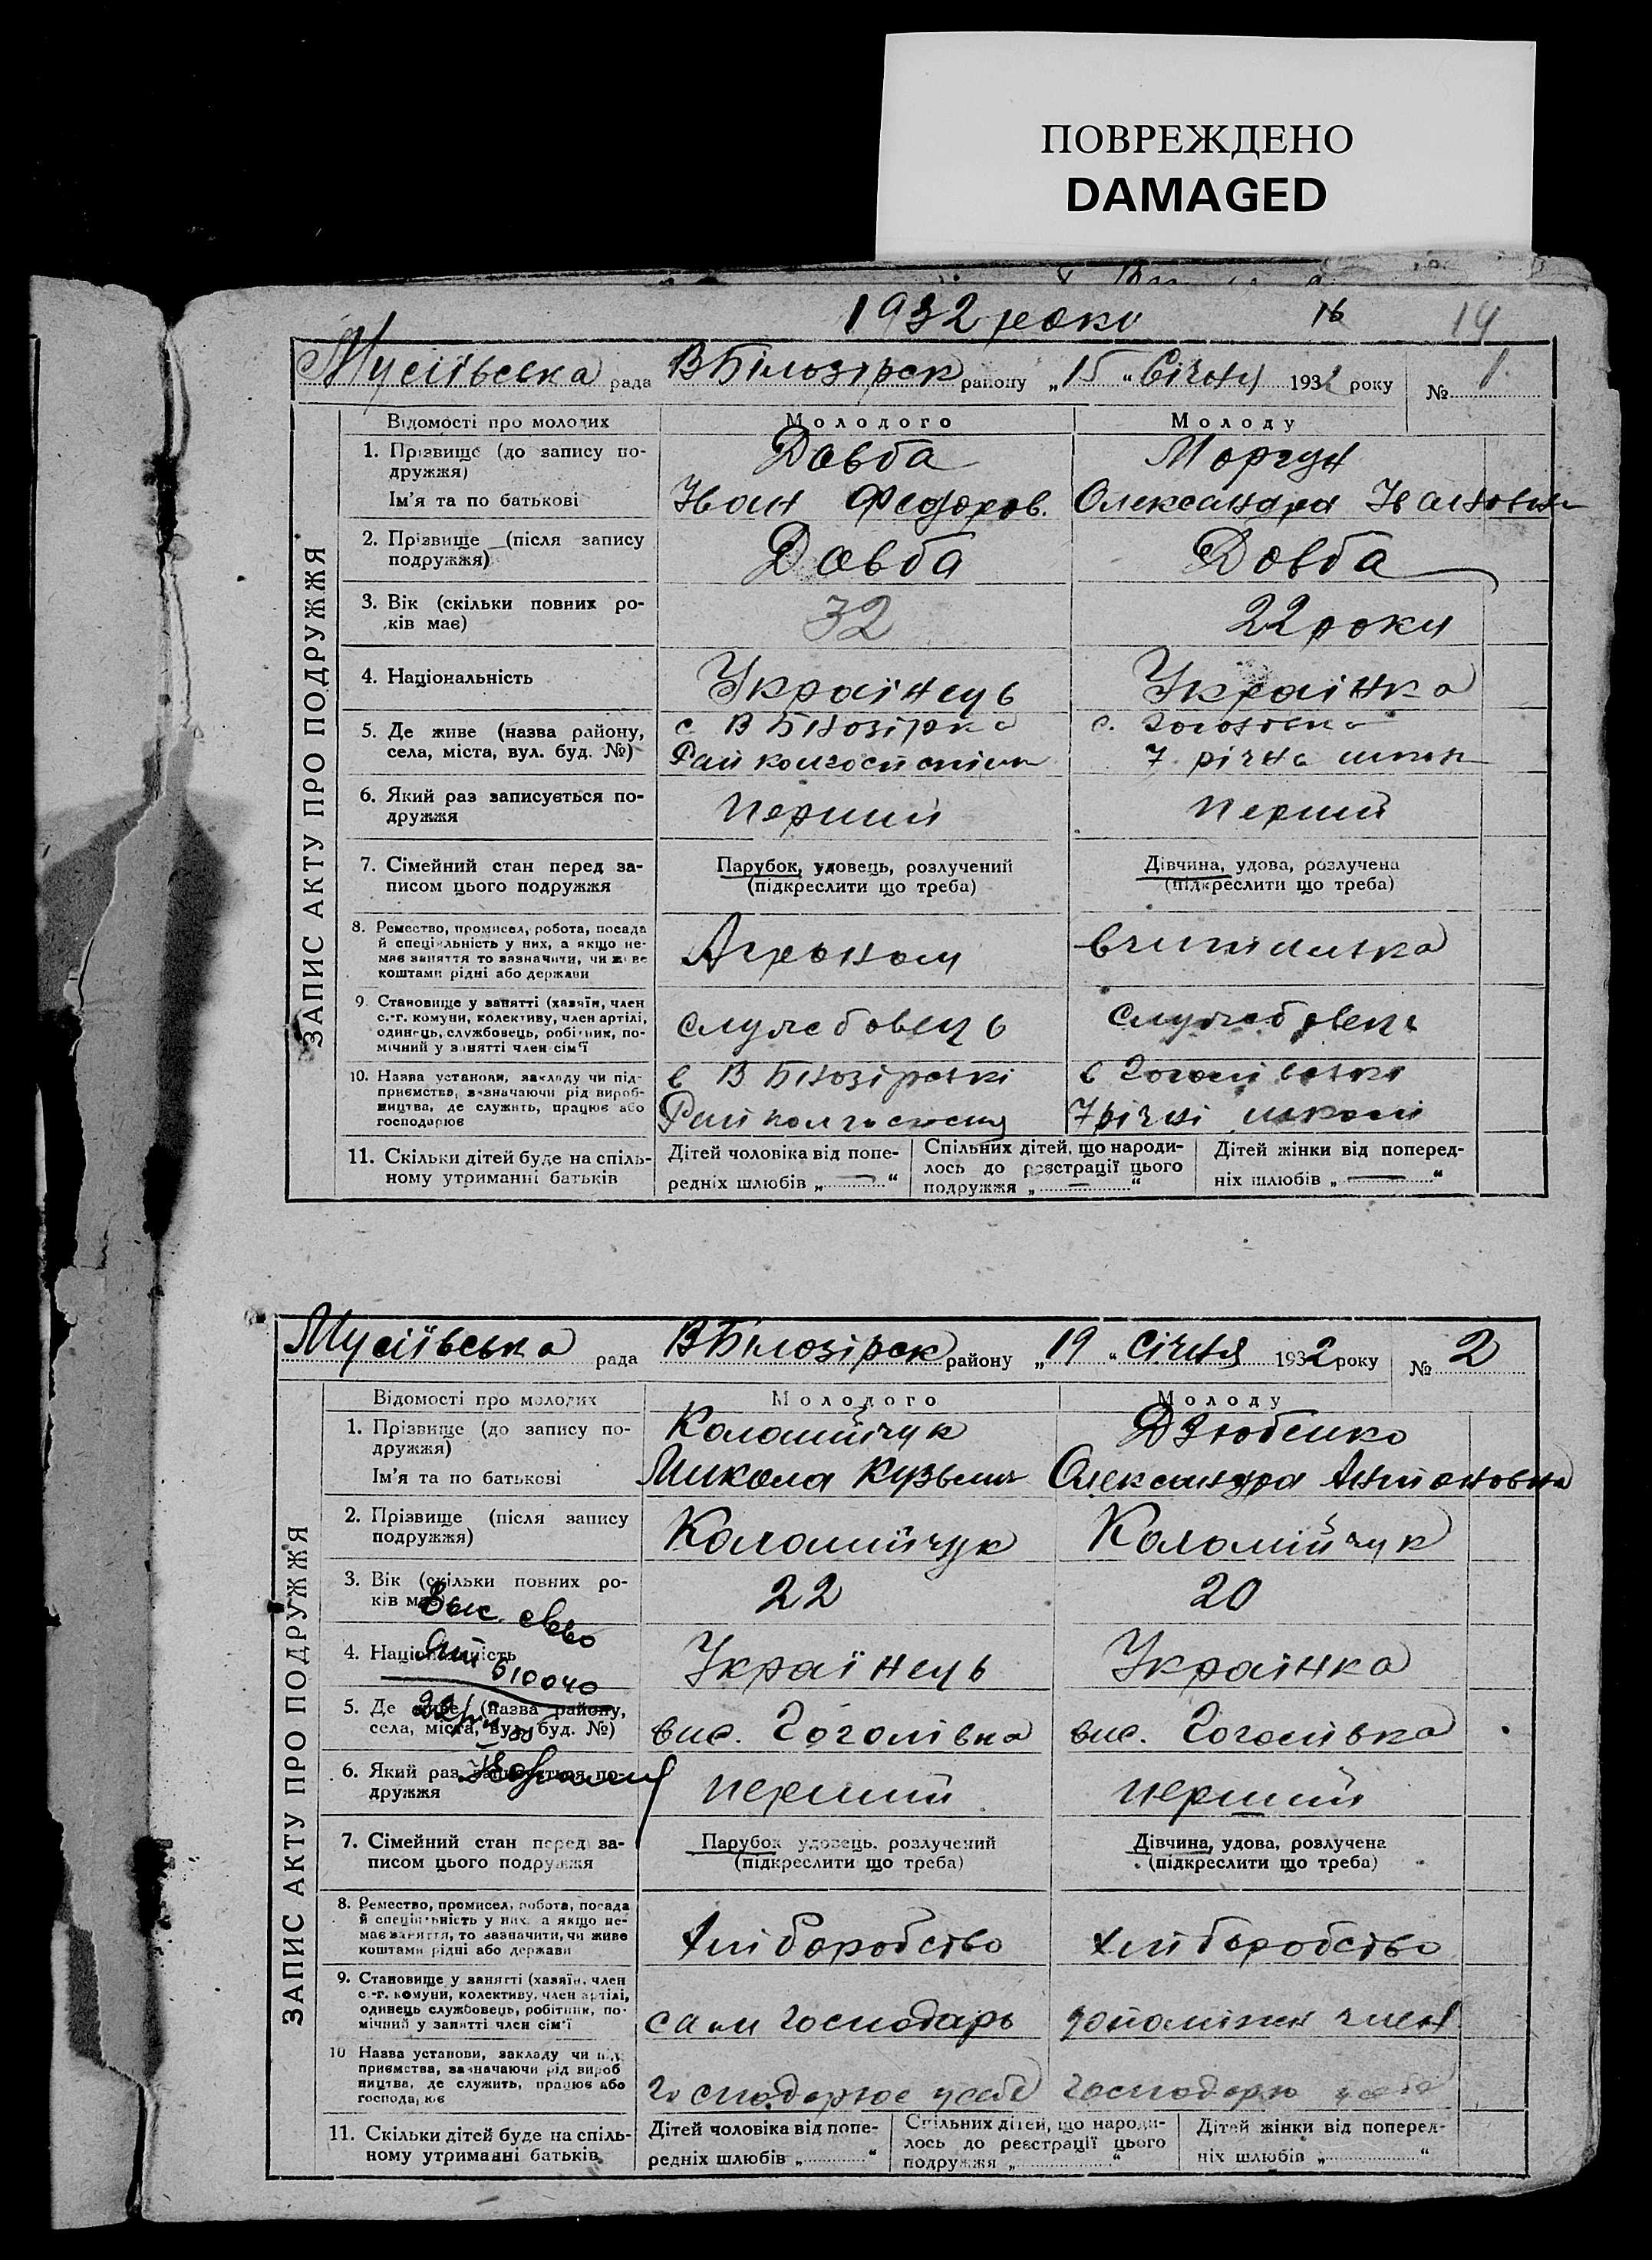 ПОВРЕЖДЕНО
DAMAGED
1932 року 16 14
Мусіївська рада ВБілозірськ району „15“ Січня 1932 року № 1
ЗАПИС АКТУ ПРО ПОДРУЖЖЯ
Відомості про молодих Молодого Молоду
1. Прізвище (до запису по- Довба Моргун
дружжя)
Ім'я та по батькові Іван Федоров. Олександра Івановна
2. Прізвище (після запису Довба Довба
подружжя)
3. Вік (скільки повних ро- 32 22 роки
ків має)
4. Національність Українець Українка
5. Де живе (назва району, с В Білозірка с.
села, міста, вул. буд. №) 7 річна
6. Який раз записується по- Перший Перший
дружжя
7. Сімейний стан перед за- Парубок, удовець, розлучений Дівчина, удова, розлучена
писом цього подружжя (підкреслити що треба) (підкреслити що треба)
8. Ремество, промисел, робота, посада
й спеціяльність у них, а якщо не- Агроном вчителька
має заняття то зазначити, чи живе
коштами рідні або держави
9. Становище у занятті (хазяїн, член
с.-г. комуни, колективу, член артілі, службовець службовець
одинець, службовець, робітник, по-
мічний у занятті член сім'ї
10. Назва установи, закладу чи під- в В Білозірській в
приємства, зазначаючи рід вироб-
ництва, де служить, працює або 7 річні школі
господарює
11. Скільки дітей буде на спіль- Дітей чоловіка від попе- Спільних дітей, що народи- Дітей жінки від поперед-
ному утриманні батьків редніх шлюбів „ — “ лось до реєстрації цього ніх шлюбів „ — “
подружжя „ — “
Мусіївська рада ВБілозірськ району „19“ Січня 1932 року № 2
ЗАПИС АКТУ ПРО ПОДРУЖЖЯ
Відомості про молодих Молодого Молоду
1. Прізвище (до запису по- Коломійчук Дзюбенко
дружжя)
Ім'я та по батькові Микола Кузьмич Олександра Антоновна
2. Прізвище (після запису Коломійчук Коломійчук
подружжя)
3. Вік (скільки повних ро- 22 20
ків має)
4. Національність Українець Українка
610040
5. Де живе (назва району,
села, міста, вул. буд. №) вис. Гоголівка вис. Гоголівка
6. Який раз записується по- перший перший
дружжя
7. Сімейний стан перед за- Парубок удовець, розлучений Дівчина, удова, розлучена
писом цього подружжя (підкреслити що треба) (підкреслити що треба)
8. Ремество, промисел, робота, посада
й спеціяльність у них, а якщо не-
має заняття, то зазначити, чи живе хліборобство хліборобство
коштами рідні або держави
9. Становище у занятті (хазяїн, член
с.-г. комуни, колективу, член артілі,
одинець службовець, робітник, по- сам господарь допоміжн член
мічний у занятті член сім'ї
10 Назва установи, закладу чи під
приємства, зазначаючи рід вироб
ництва, де служить, працює або господарює у себе
господарює
11. Скільки дітей буде на спіль- Дітей чоловіка від попе- Спільних дітей, що народи- Дітей жінки від поперед-
ному утриманні батьків редніх шлюбів „ “ лось до реєстрації цього ніх шлюбів „ “
подружжя „ “